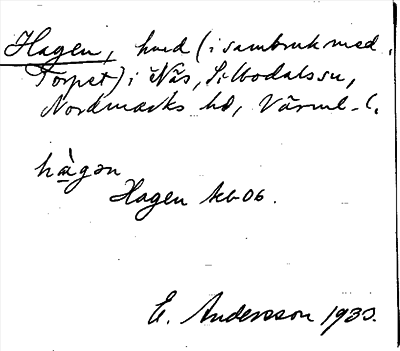 Hagen, hmd (i sambruk med
Torpet) i Näs, Silbodals sn,
Nordmarks hd, Värml. l.
hàgən
Hagen kb 06.
E. Andersson 1933.